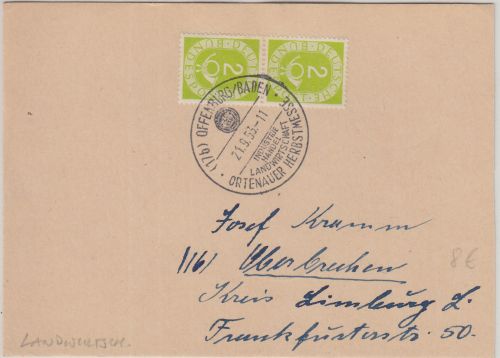 2 DEUTSCHE BUNDESPOST
2 DEUTSCHE BUNDESPOST
(17b) OFFENBURG/BADEN
21.9.53.-11
INDUSTRIE
HANDEL
LANDWIRTSCHAFT
ORTENAUER HERBSTMESSE
Josef Kramm
(16) Oberbrechen
8€
Kreis Limburg L.
Frankfurterstr. 50.
LANDWIRTSCH.